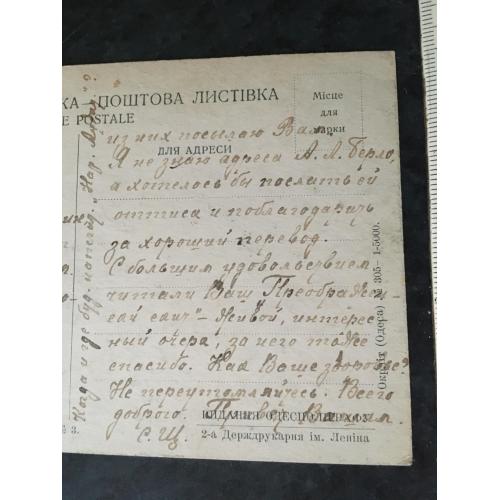 КА–ПОШТОВА ЛИСТІВКА
E POSTALE
Місце
для
марки
ДЛЯ АДРЕСИ
из них посылаю Вам.
Я не знаю адреса А. Л. Берло,
а хотелось бы послать ей
оттиск и поблагодарить
за хороший перевод.
С большим удовольствием
читали Ваш
Живой, интерес
ный очерк, за него тоже
спасибо. Как Ваше здоровье?
Не переутомляйтесь. Всего
доброго. Привет Вашим.
С. Щ.
2-а Держдрукарня ім. Леніна
№ 305– 1-5000.
Когда и где буд.
№ 3.